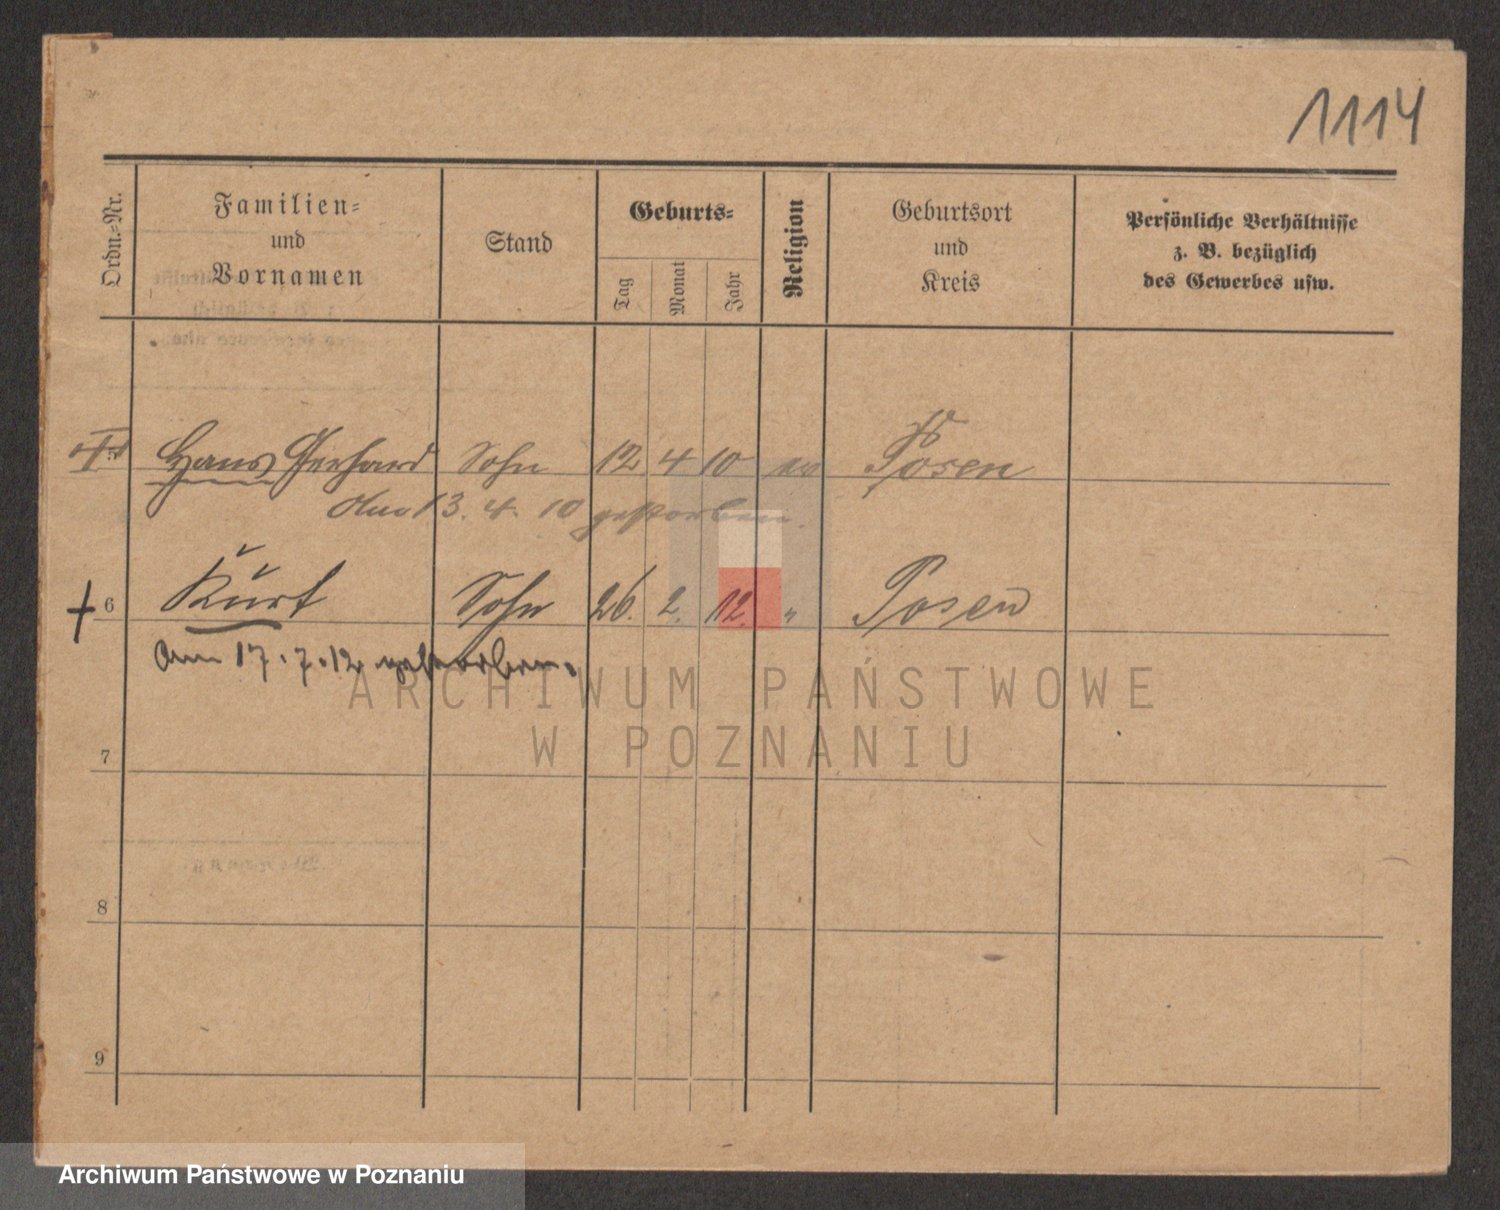 1114
Ordn.-Nr.
Familien-
und
Vornamen
Stand
Geburts-
Tag
Monat
Jahr
Religion
Geburtsort
und
Kreis
Persönliche Verhältnisse
z. B. bezüglich
des Gewerbes usw.
Hans Gerhard Sohn 12 4 10 ev Posen
Am 13. 4. 10 gestorben.
6 Kurt Sohn 26. 2. 12. " Posen
Am 17. 7. 12 gestorben.
ARCHIWUM PAŃSTWOWE
W POZNANIU
7
8
9
Archiwum Państwowe w Poznaniu